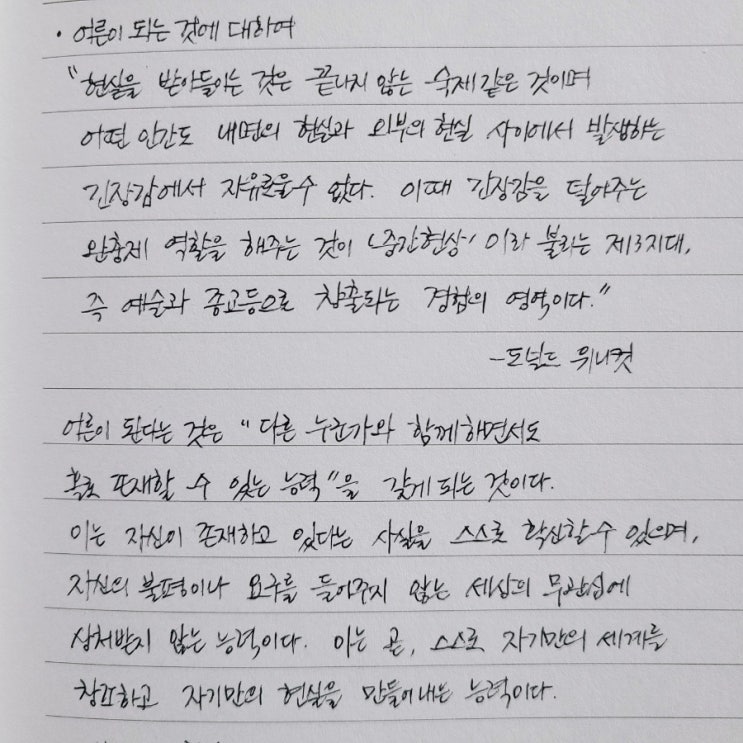 · 어른이 되는 것에 대하여
"현실을 받아들이는 것은 끝나지 않는 숙제 같은 것이며
어떤 인간도 내면의 현실과 외부의 현실 사이에서 발생하는
긴장감에서 자유로울 수 없다. 이때 긴장감을 덜어주는
완충제 역할을 해주는 것이 '중간현상'이라 불리는 제3지대,
즉 예술과 종교등으로 창출되는 경험의 영역이다."
-도널드 위니컷
어른이 된다는 것은 "다른 누군가와 함께하면서도
홀로 존재할 수 있는 능력"을 갖게 되는 것이다.
이는 자신이 존재하고 있다는 사실을 스스로 확신할 수 있으며,
자신의 불평이나 요구를 들어주지 않는 세상의 무관심에
상처받지 않는 능력이다. 이는 곧, 스스로 자기만의 세계를
창조하고 자기만의 현실을 만들어내는 능력이다.